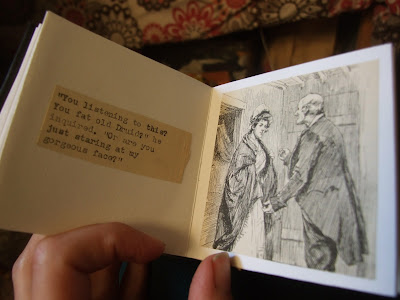 "You listening to this?
You fat old Druid?" he
inquired, "Or are you
just staring at my
gorgeous face?"